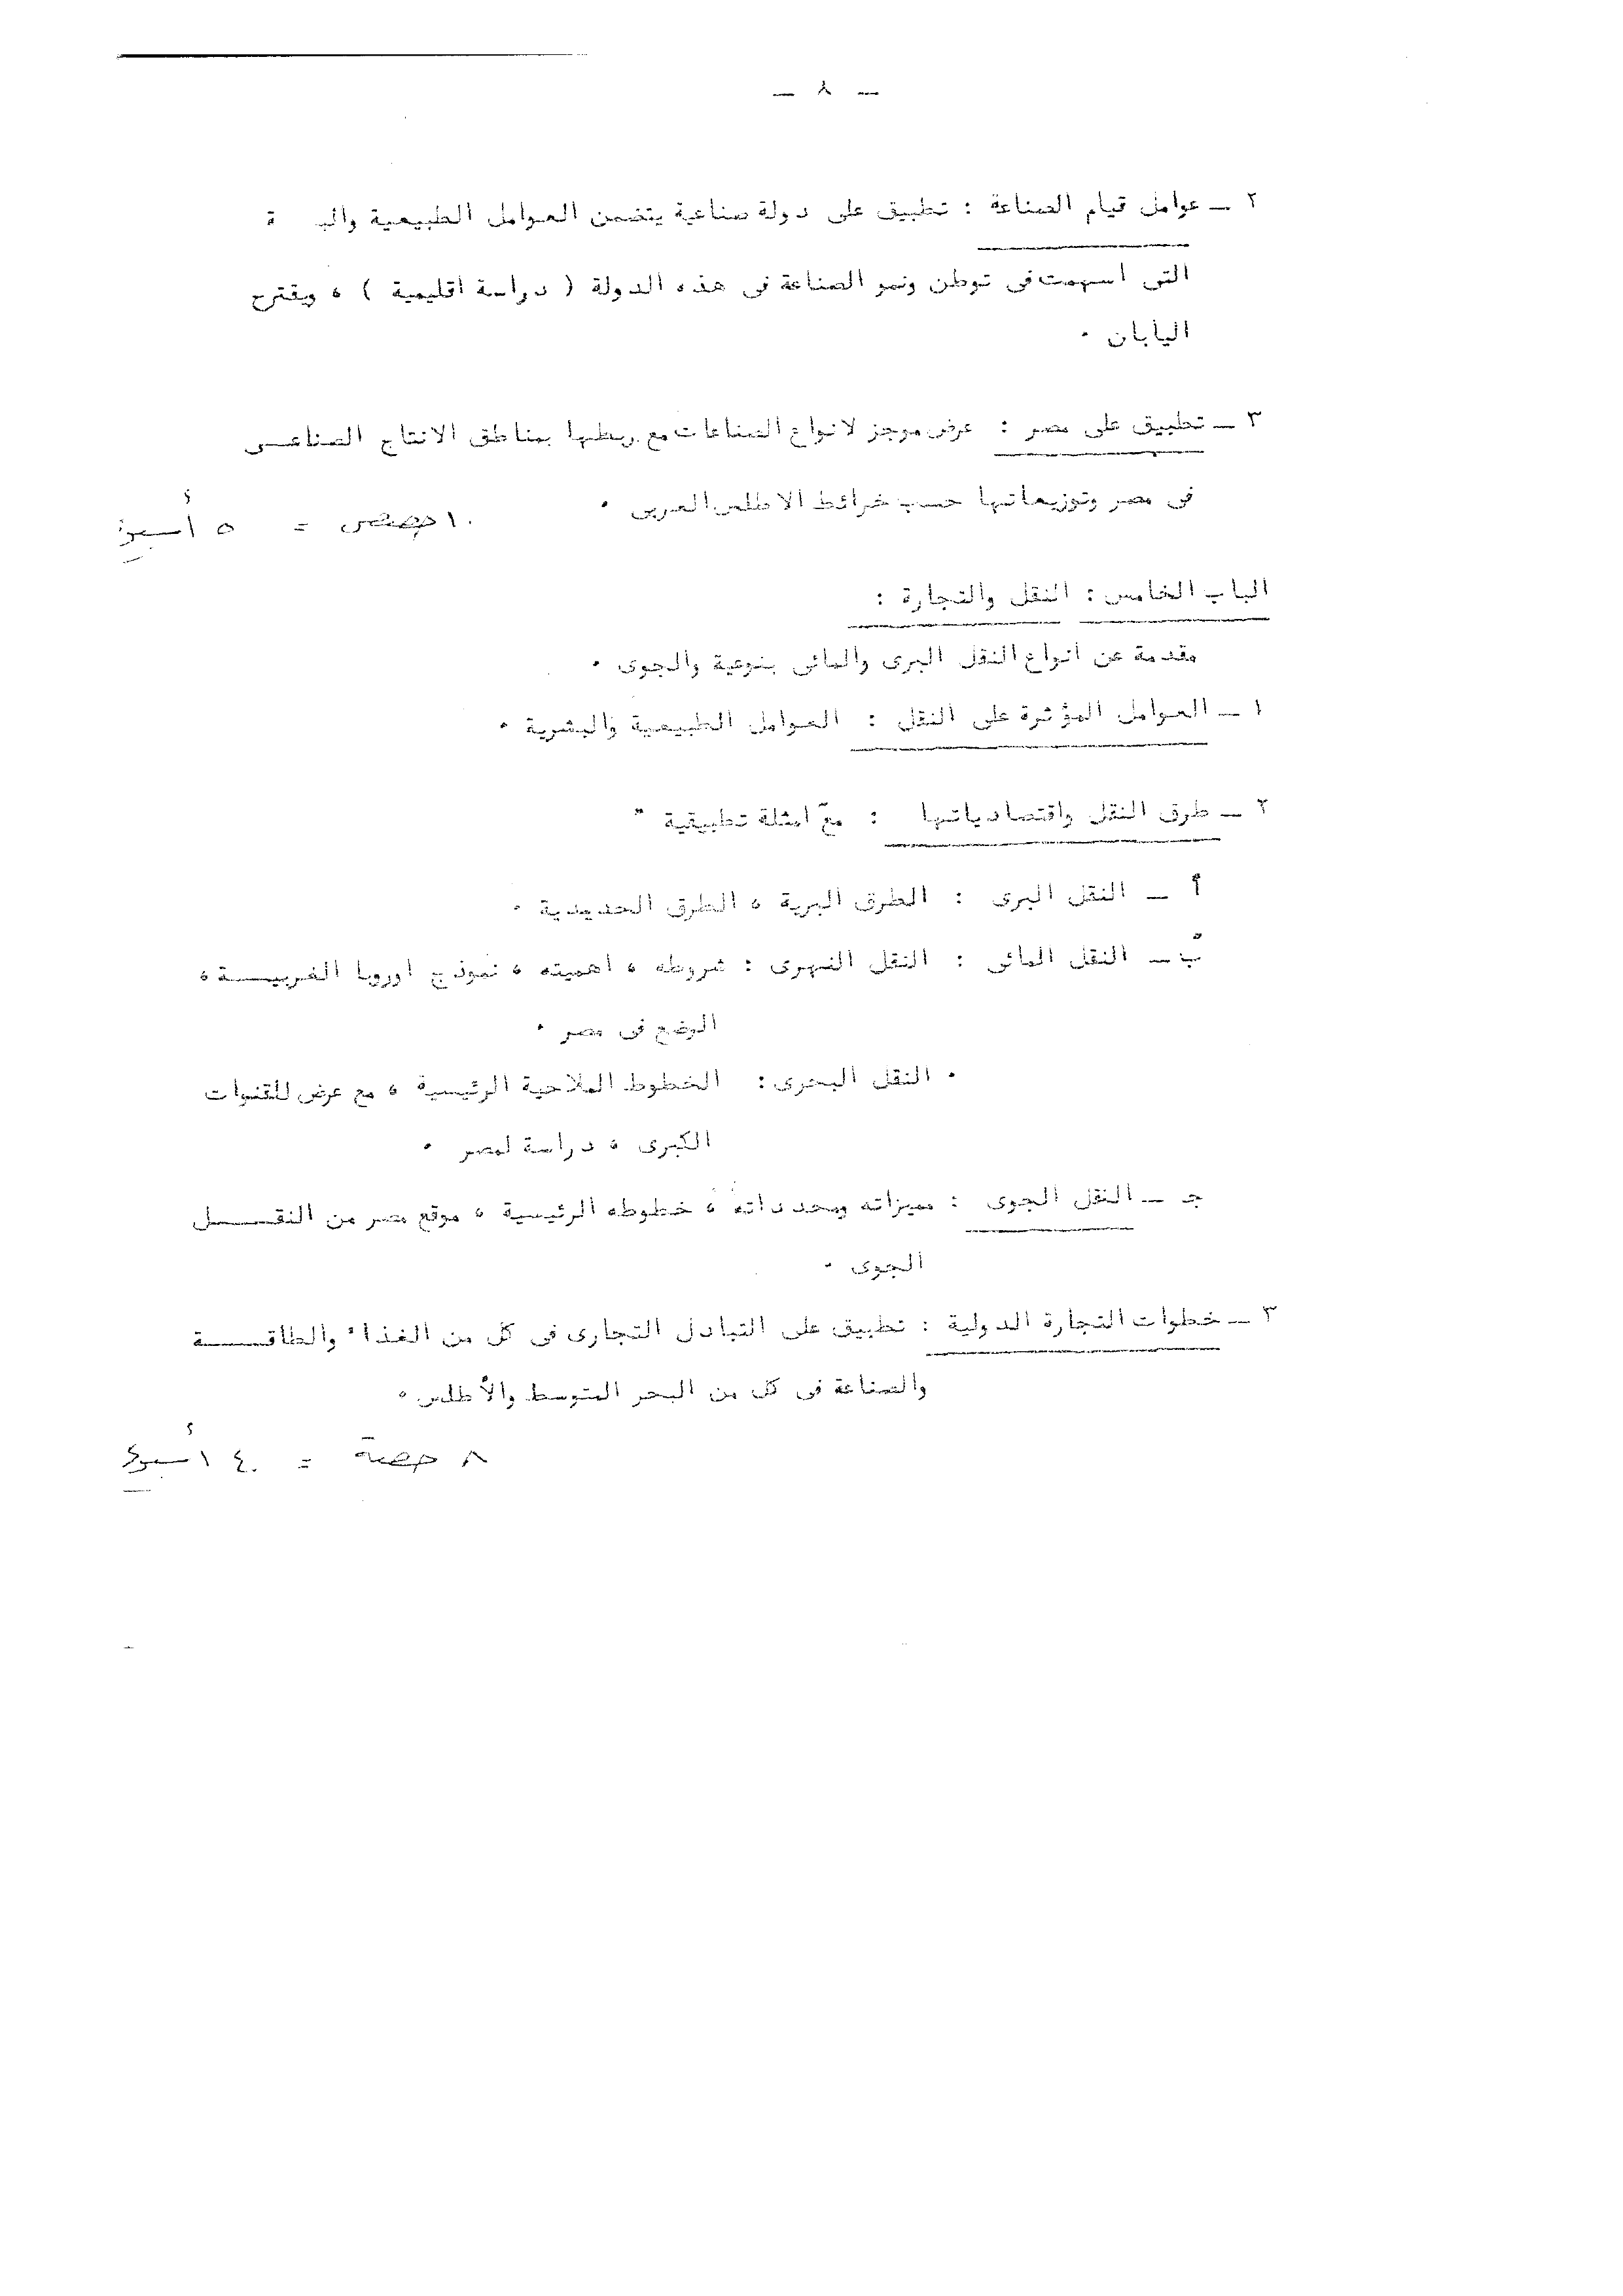 — ٨ —
٢ — عوامل قيام الصناعة : تطبيق على دولة صناعية يتضمن العوامل الطبيعية
التى اسهمت فى توطن ونمو الصناعة فى هذه الدولة ( دراسة اقليمية ) ، ويقترح
اليابان ٠
٣ — تطبيق على مصر : عرض موجز لانواع الصناعات مع ربطها بمناطق الانتاج الصناعــى
فى مصر وتوزيعاتها حسب خرائط الاطلس العربى ٠
١٠ حصص = ٥ أسبوع
الباب الخامس : النقل والتجارة :
مقدمة عن انواع النقل البرى والمائى بنوعية والجوى ٠
١ — العوامل المؤثرة على النقل : العوامل الطبيعية والبشرية ٠
٢ — طرق النقل واقتصادياتها : مع امثلة تطبيقية
أ — النقل البرى : الطرق البرية ، الطرق الحديدية ٠
ب — النقل المائى : النقل النهرى : شروطه ، اهميته ، نموذج اوروبا الغربيـــة ،
الوضع فى مصر ٠
٠ النقل البحرى : الخطوط الملاحية الرئيسية ، مع عرض للقنوات
الكبرى ، دراسة لمصر ٠
جـ — النقل الجوى : مميزاته ومحدداته ، خطوطه الرئيسية ، موقع مصر من النقـــل
الجوى ٠
٣ — خطوات التجارة الدولية : تطبيق على التبادل التجارى فى كل من الغذاء والطاقـــة
والصناعة فى كل من البحر المتوسط والأطلس ٠
٨ حصة = ٤ أسبوع